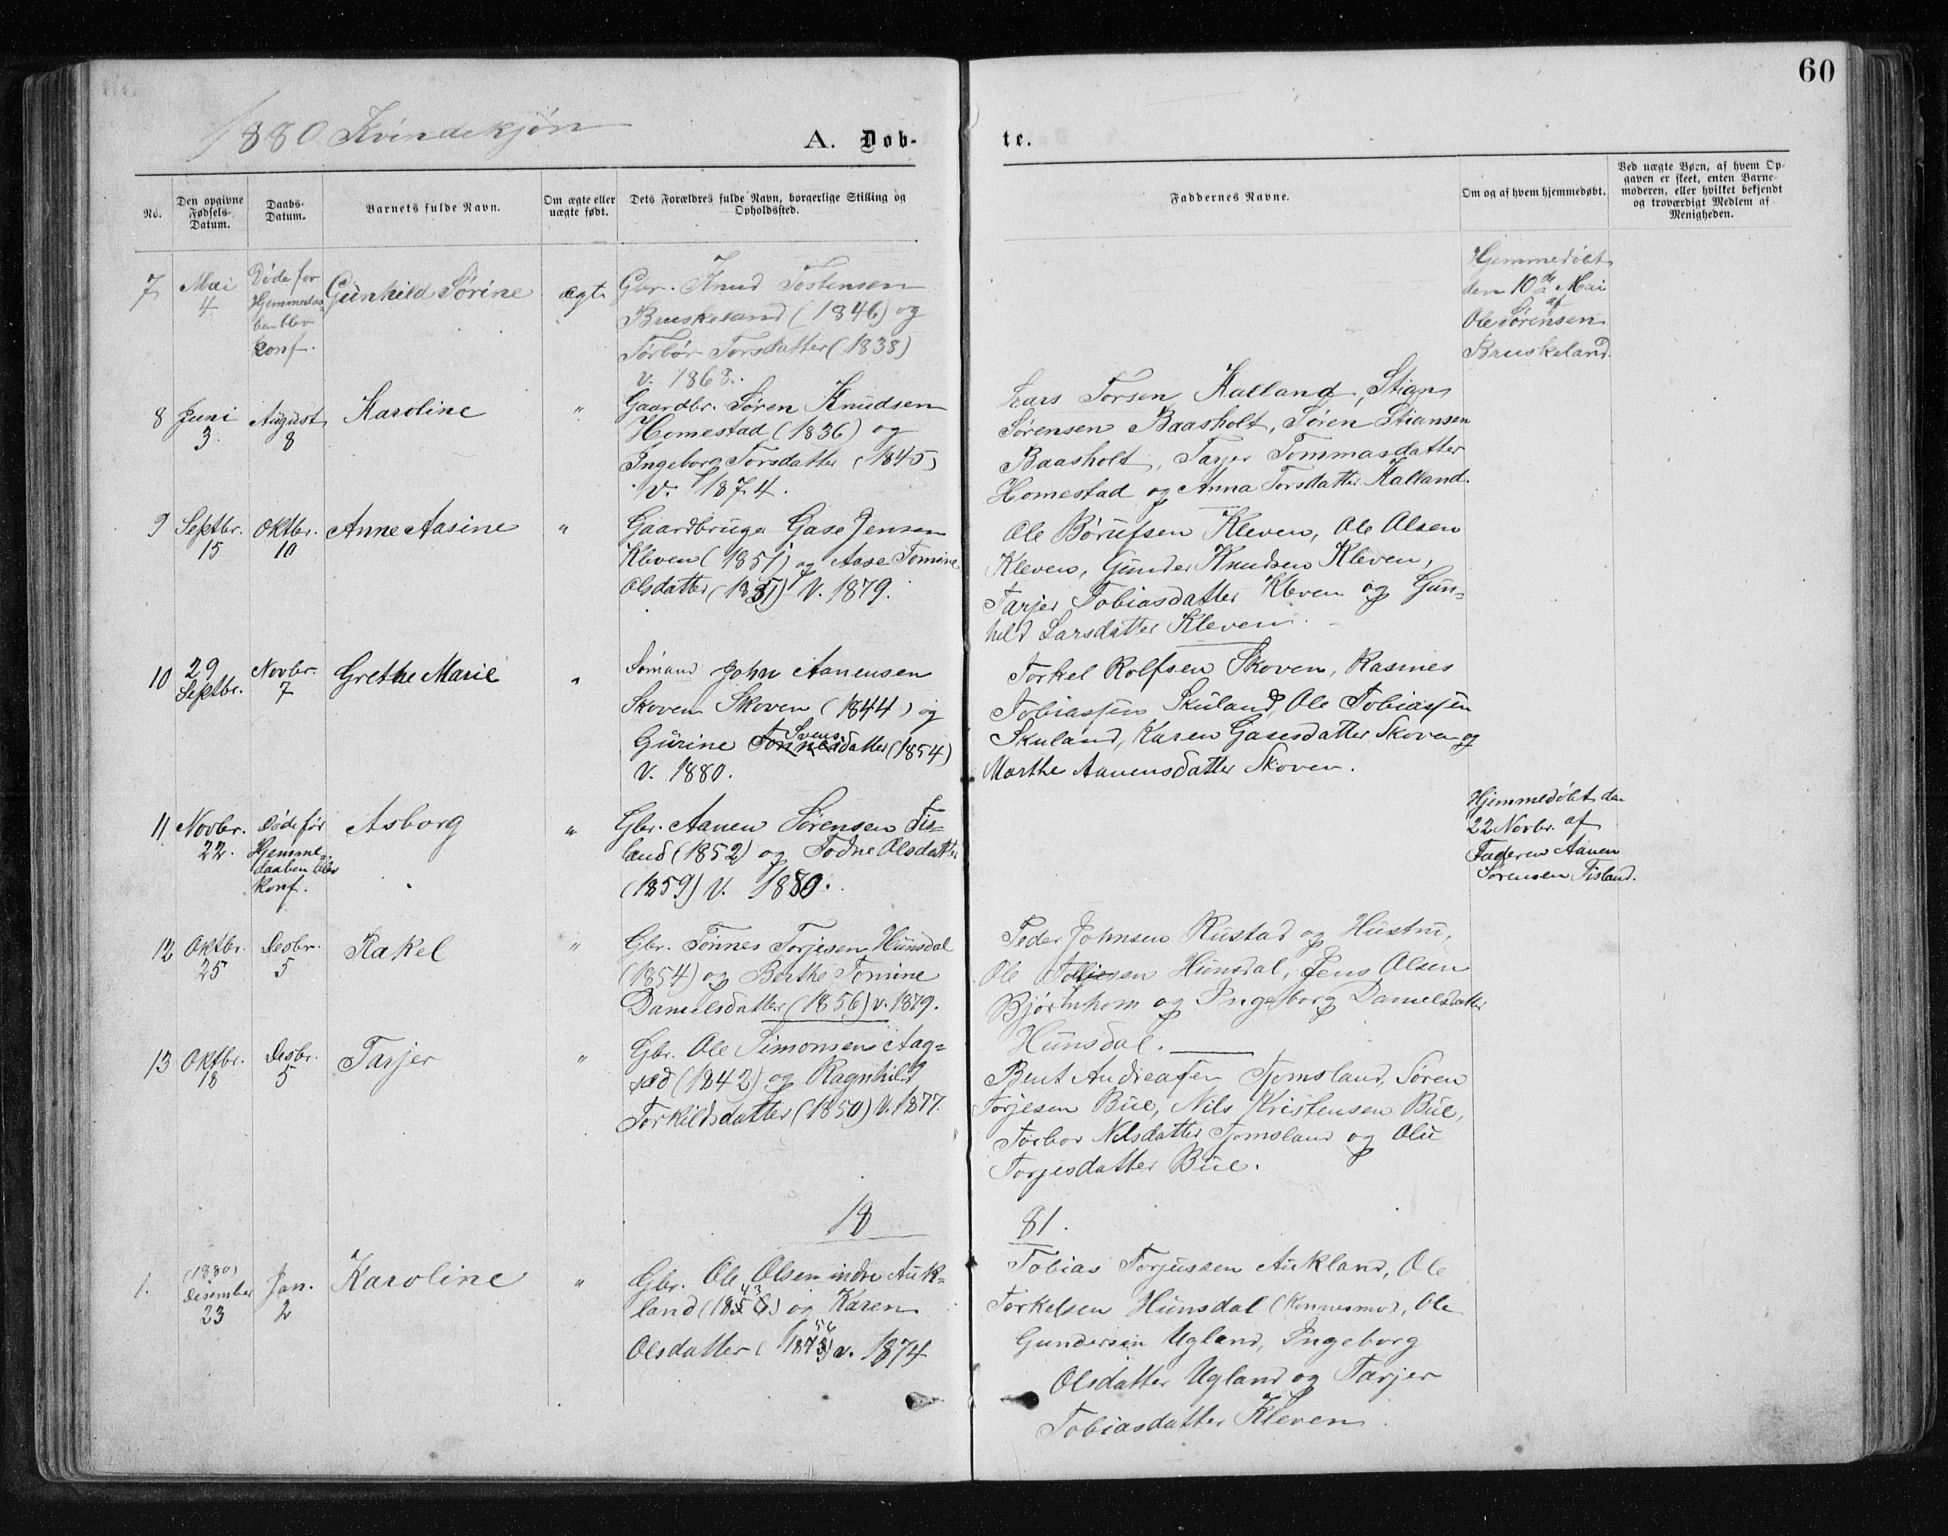 60
1880 Kvindekjøn
A. Døb-
te.
No.
Den opgivne Fødsels-Datum.
Daabs-Datum.
Barnets fulde Navn.
Om ægte eller uægte født.
Dets Forældres fulde Navn, borgerlige Stilling og Opholdssted.
Faddernes Navne.
Om og af hvem hjemmedøbt.
Ved uægte Børn, af hvem Op-
gaven er skeet, enten Barne-
moderen, eller hvilket bekjendt
og troværdigt Medlem af
Menigheden.
7
Mai
4
Døde før
blev
konf.
Gunhild Sørine
ægte
Gbr. Knud Tostensen
Bruskeland (1846) og
Tørbør Torsdatter (1838)
v. 1868.
Hjemmedøbt
den 10de Mai
af
Ole Sørensen
Bruskeland.
8
Juni
3.
August
8
Karoline
"
Gaardbr. Søren Knudsen
Homestad (1836) og
Ingeborg Torsdatter (1845)
v. 1874.
Lars Torsen Kalland, Stian
Sørensen Baasholt, Søren Stiansen
Baasholt, Tarjer Tommasdatter
Homestad og Anna Torsdatter Kalland.
9
Septbr.
15
Oktbr.
10
Anne Aasine
"
Gaardbruger Gase Jensen
Kleven (1851) og Aase Tomine
Olsdatter (1851) V. 1879.
Ole Børufsen Kleven, Ole Olsen
Kleven, Gunder Knudsen Kleven,
Tarjer Tobiasdatter Kleven og Gun-
hild Larsdatter Kleven.
10
29
Septbr.
Novbr.
7
Grethe Marie
"
Sømand John Aanensen
Skoven Skoven (1844) og
Svens
Gurine Tønnesdatter (1854)
V. 1880.
Torkel Rolfsen Skoven, Rasmus
Tobiassen Skuland, Ole Tobiassen
Skuland, Karen Gasesdatter Skoven og
Marthe Aanensdatter Skoven.
11
Novbr.
22.
Døde før
Hjemme-
daaben blev
konf.
Asborg
"
Gbr. Aanen Sørensen Fis-
land (1852) og Todne Olsdatter
(1859) V. 1880.
Hjemmedøbt den
22 Novbr. af
Faderen Aanen
Sørensen Fisland.
12
Oktbr.
25
Desbr.
5
Rakel
"
Gbr. Tønnes Torjesen Hunsdal
(1854) og Berthe Tomine
Danielsdatter (1856) v. 1879.
Peder Johnsen Rustad og Hustru,
Ole Hunsdal, Jens Olsen
Bjørnhom og Ingeborg Danielsdatter
Hunsdal.
13
Oktbr.
18
Desbr.
5
Tarjer
"
Gbr. Ole Simonsen Aag-
sæd (1842) og Ragnhild
Torkildsdatter (1850) V. 1877.
Bent Andreassen Tjomsland, Søren
Torjesen Bue, Nils Kristensen Bue,
Torbor Nilsdatter Tjomsland og Olu
Torjesdatter Bue.
18
81.
1.
(1880)
Desember
23
Jan.
2
Karoline
"
Gbr. Ole Olsen indre Auk-
43
land (1856) og Karen
56
Olsdatter (1843) v. 1874
Tobias Torjussen Aukland, Ole
Torkelsen Hunsdal (Konnesmo), Ole
Gundersen Ugland, Ingeborg
Olsdatter Ugland og Tarjer
Tobiasdatter Kleven.